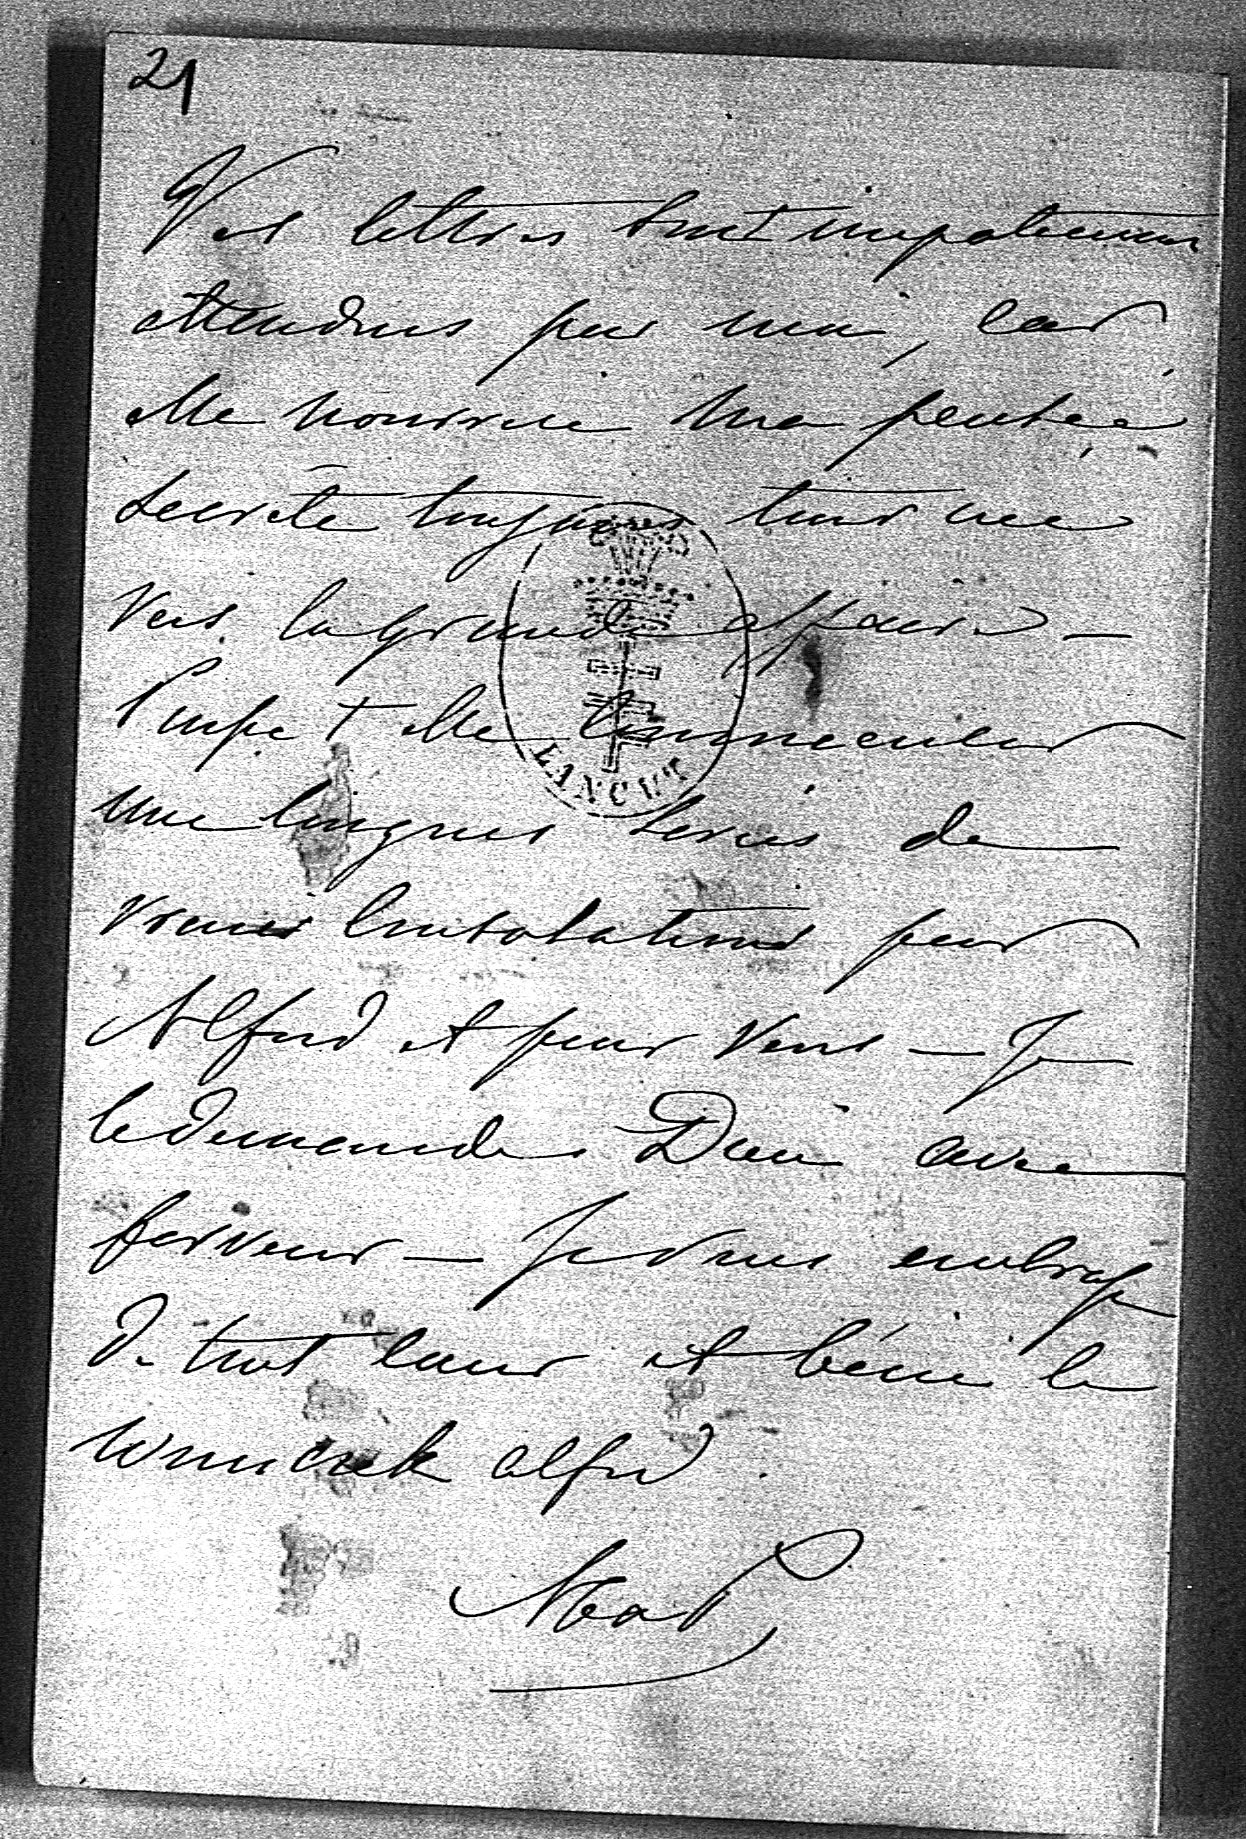 21
Vos lettres sont impatiemment
attendues par moi, car
elle nourrie ma pensée
secrète toujours tournée
vers la grande affaire —
Puisse t elle commencer
une longues series de
vraies consolations pour
Alfred et pour Vous — Je
le demande a Dieu avec
ferveur — Je vous embrasse
de tout cœur et bénie le
wnuczek Alfred.
LANCUT